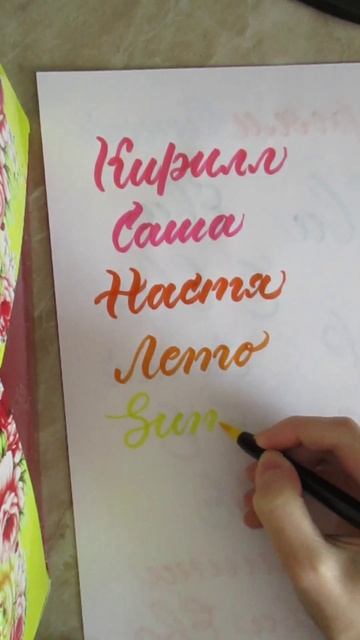 Кирилл
Саша
Настя
Лето